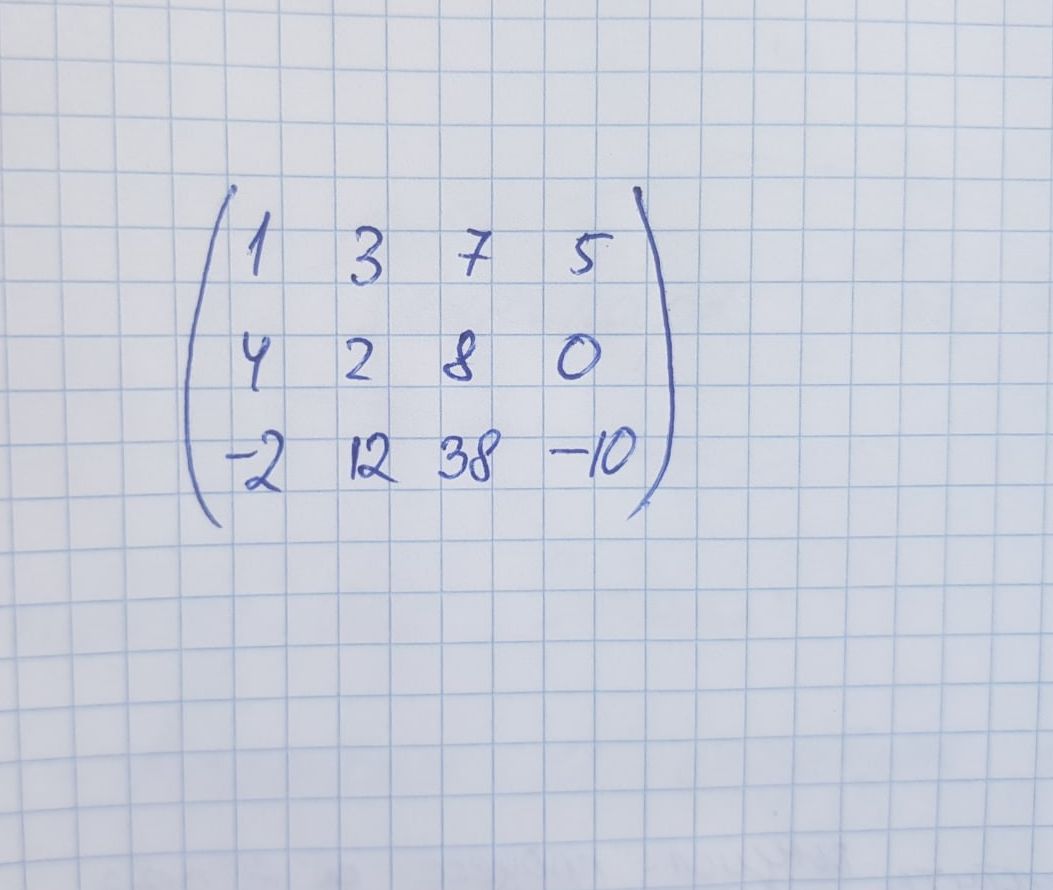 1 3 7 5
4 2 8 0
-2 12 38 -10